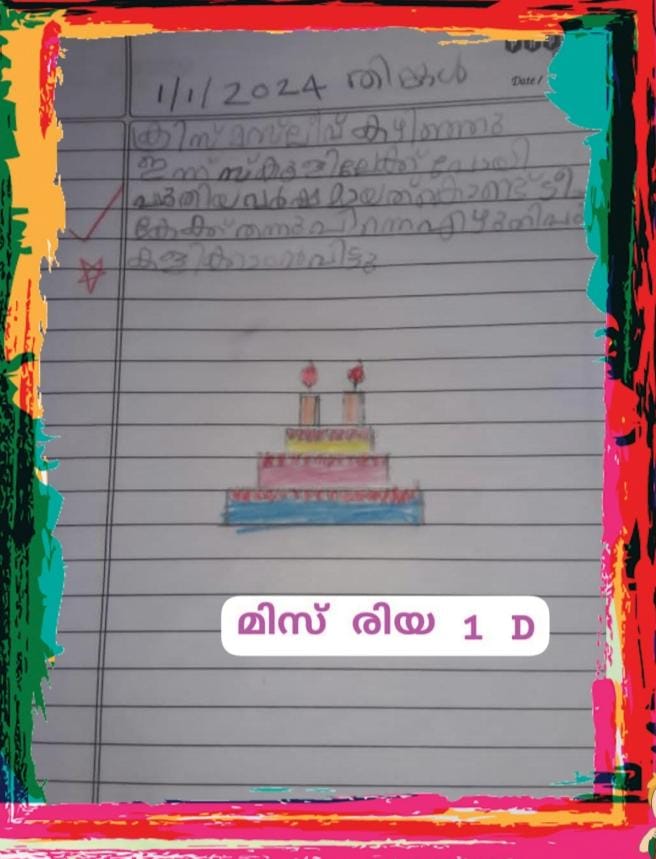 1/1/2024 തിങ്കൾ
Date /
ക്രിസ്മസ് ലീവ് കഴിഞ്ഞു
ഇന്ന് സ്കൂളിലേക്ക് പോയി
പുതിയ വർഷമായത്കൊണ്ട് ടീ
കേക്ക് തന്നു പിന്നെ എഴുതി
കളിക്കാൻ വിട്ടു
മിസ് രിയ 1 D